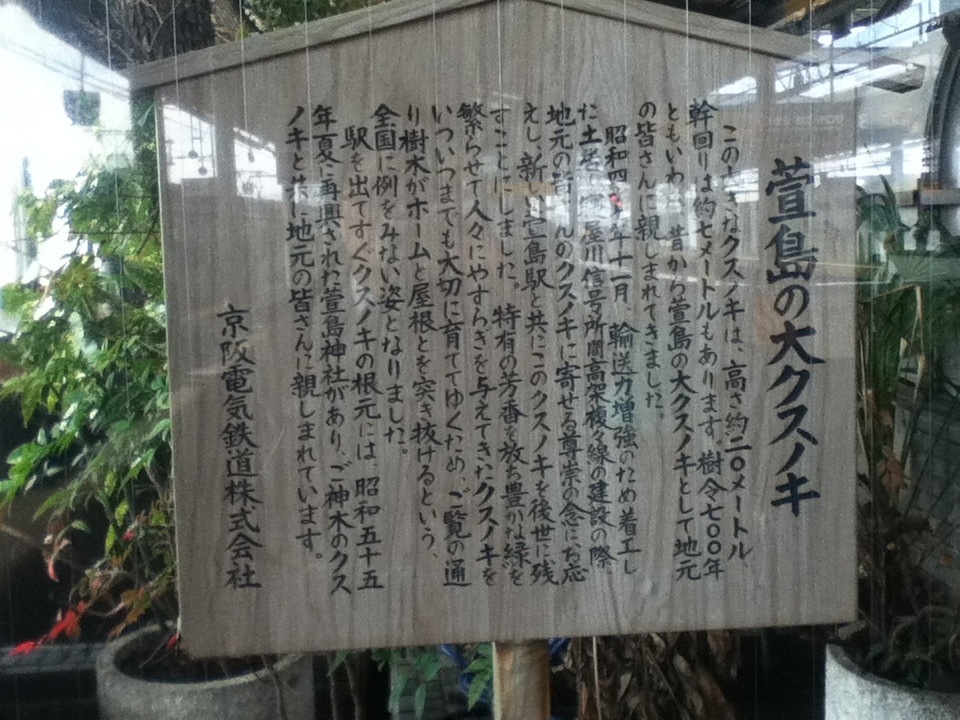 萱島の大クスノキ
このきなクスノキは、高さ約二〇メートル、
幹回りは約七メートルもあります。樹令七〇〇年
ともいわ 昔から萱島の大クスノキとして地元
の皆さんに親しまれてきました。
昭和四 年十一月、輪送力増強のため着工し
た土居 屋川信号所間高架複々線の建設の際、
地元の皆 んのクスノキに寄せる尊崇の念にお応
えし、新しい萱島駅と共にこのクスノキを後世に残
すことにしました。特有の芳香を放ち豊かな緑を
繁らせて人々にやすらぎを与えてきたクスノキを
いついつまでも大切に育ててゆくため、ご覧の通
り樹木がホームと屋根とを突き抜けるという、
全国に例をみない姿となりました。
駅を出てすぐクスノキの根元には、昭和五十五
年夏に再興された萱島神社があり、ご神木のクス
ノキと共に地元の皆さんに親しまれています。
京阪電気鉄道株式会社